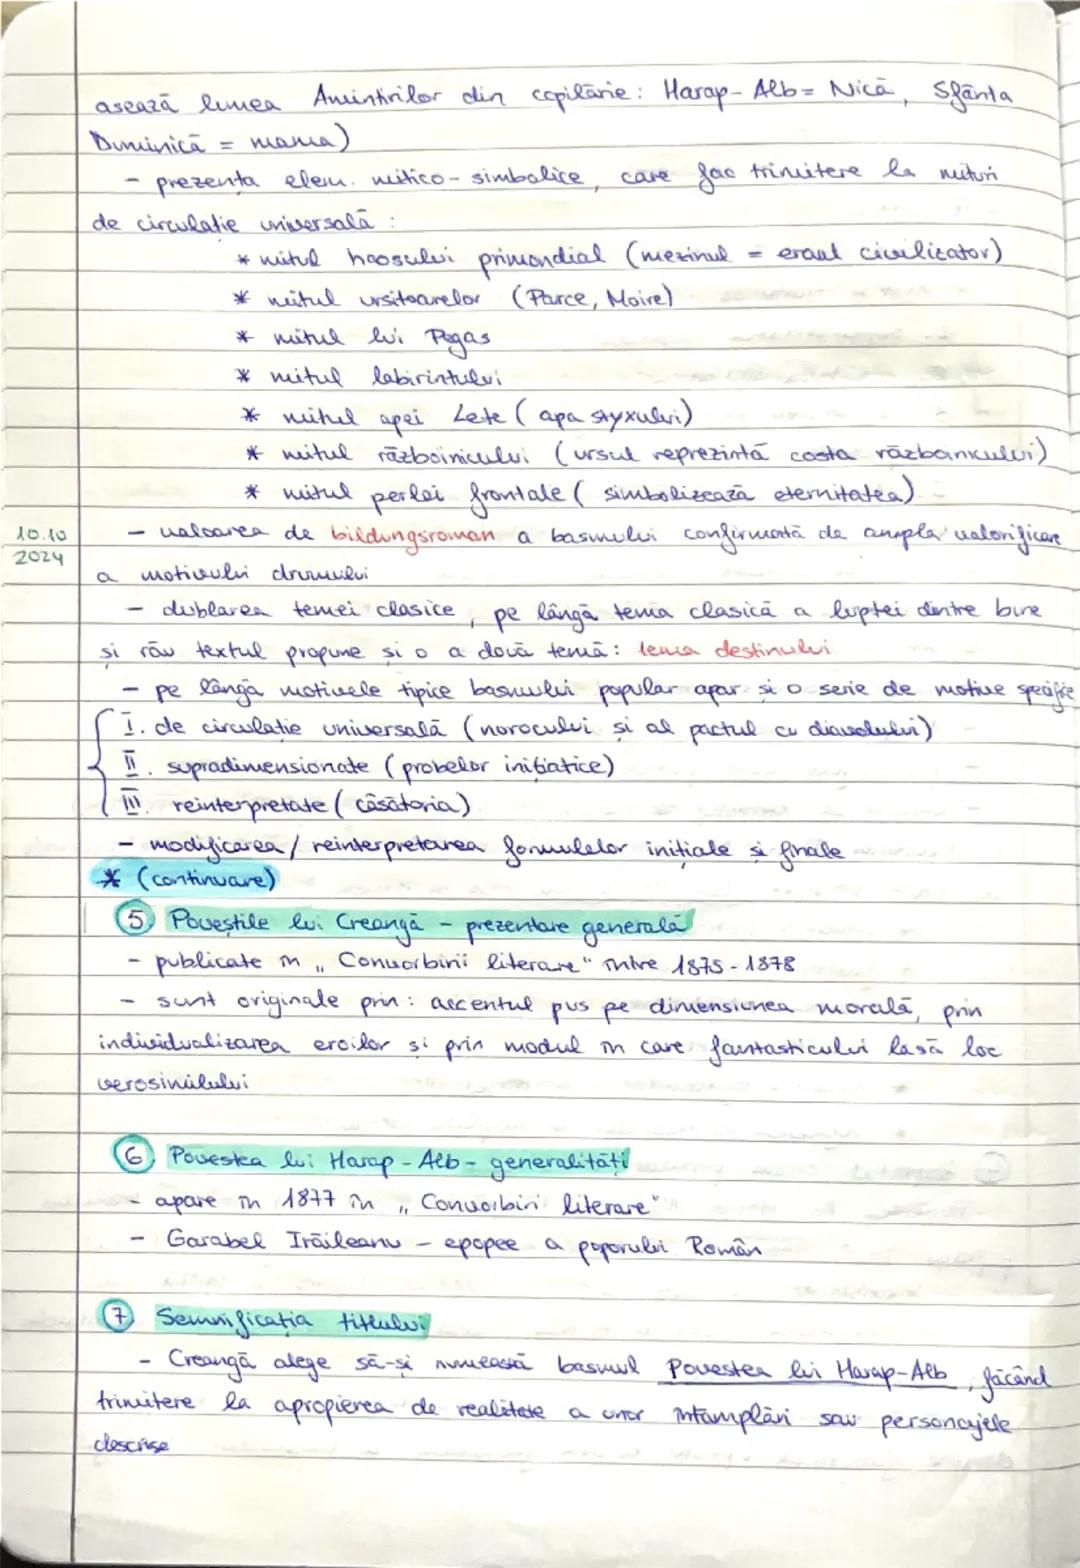 asează lumea Amintirilor din copilărie: Harap-Alb = Nică, Sfânta
Duminică = mama)
- prezența elem. mitico-simbolice, care fac trimitere la mituri
de circulație universală :
* mitul haosului primondial (mezinul = eroul civilizator)
* mitul ursitoarelor (Parce, Moire)
* mitul lui Pegas
* mitul labirintului
* mitul apei Lete (apa styxului)
* mitul războinicului (ursul reprezintă casta războinicului)
* mitul perlei frontale (simbolizează eternitatea)
10.10
2024
- valoarea de bildungsroman a basmului confirmată de ampla valorificare
a motivului drumului
- dublarea temei clasice, pe lângă tema clasică a luptei dintre bine
și rău textul propune și o a două temă: tema destinului
- pe lângă motivele tipice basmului popular apar și o serie de motive specifice
I. de circulație universală (norocului și al pactul cu diavolului)
II. supradimensionate (probelor inițiatice)
III. reinterpretate (căsătoria)
- modificarea / reinterpretarea formulelor inițiale și finale
* (continuare)
5 Poveștile lui Creangă - prezentare generală
- publicate în „Convorbirii literare" între 1875-1878
- sunt originale prin: accentul pus pe dimensiunea morală, prin
individualizarea eroilor și prin modul în care fantasticului lasă loc
verosimilului
6 Povestea lui Harap-Alb - generalități
- apare în 1877 în „Convorbiri literare"
- Garabel Irăileanu - epopee a poporului Român
7 Semnificația titlului
- Creangă alege să-și numească basmul Povestea lui Harap-Alb, făcând
trimitere la apropierea de realitate a unor întamplări sau personajele
descrise